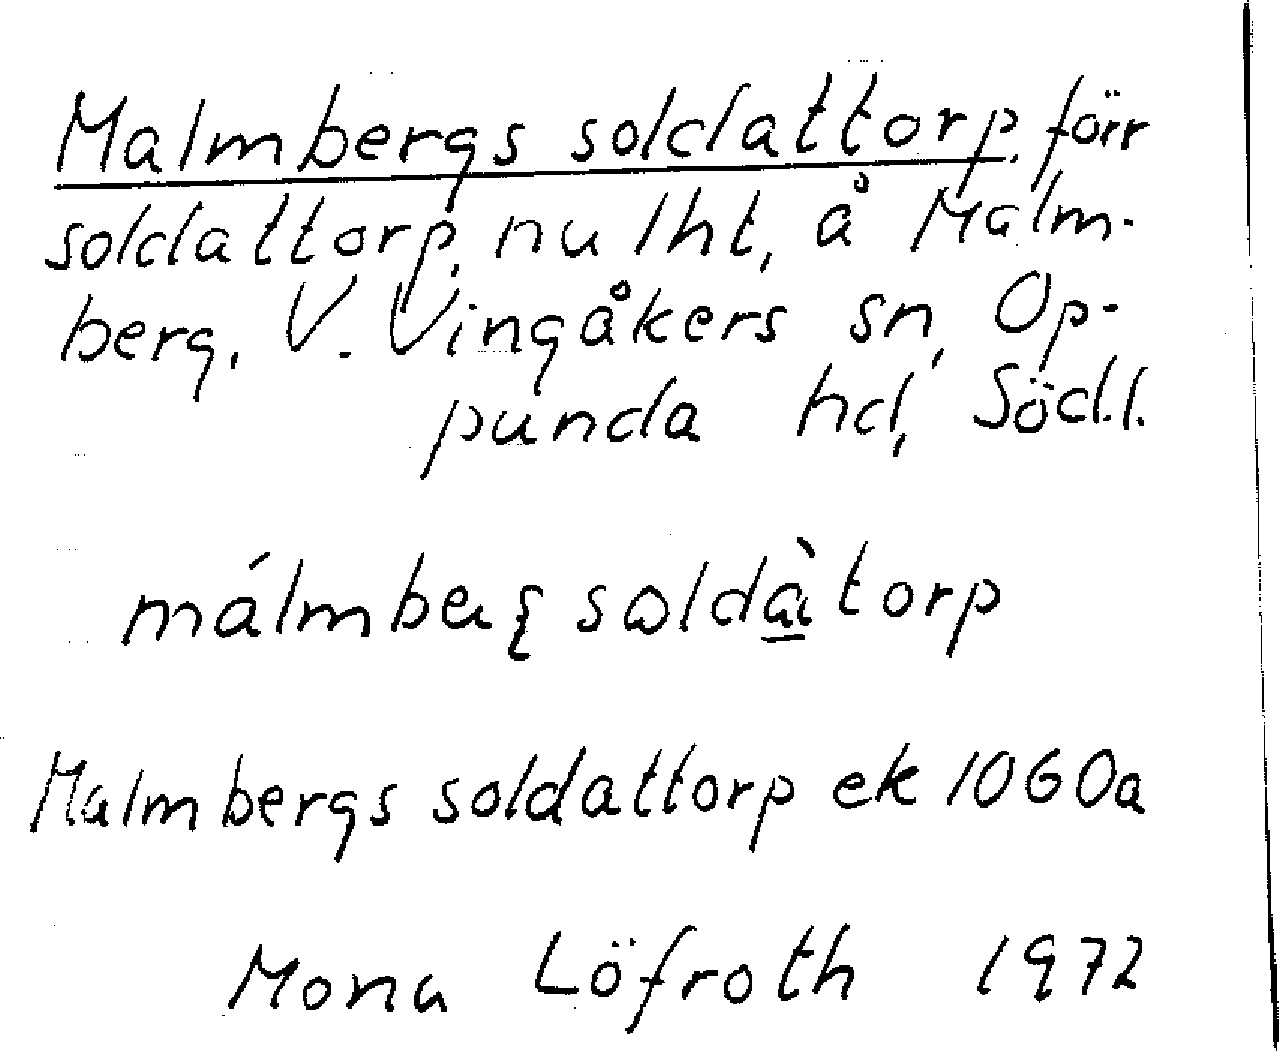 Malmbergs soldattorp, förr
soldattorp, nu lht, å Malm-
berg, V. Vingåkers sn, Op-
punda hd, Södl.
Malmbergs soldattorp ek 1060a
Mona Löfroth 1972